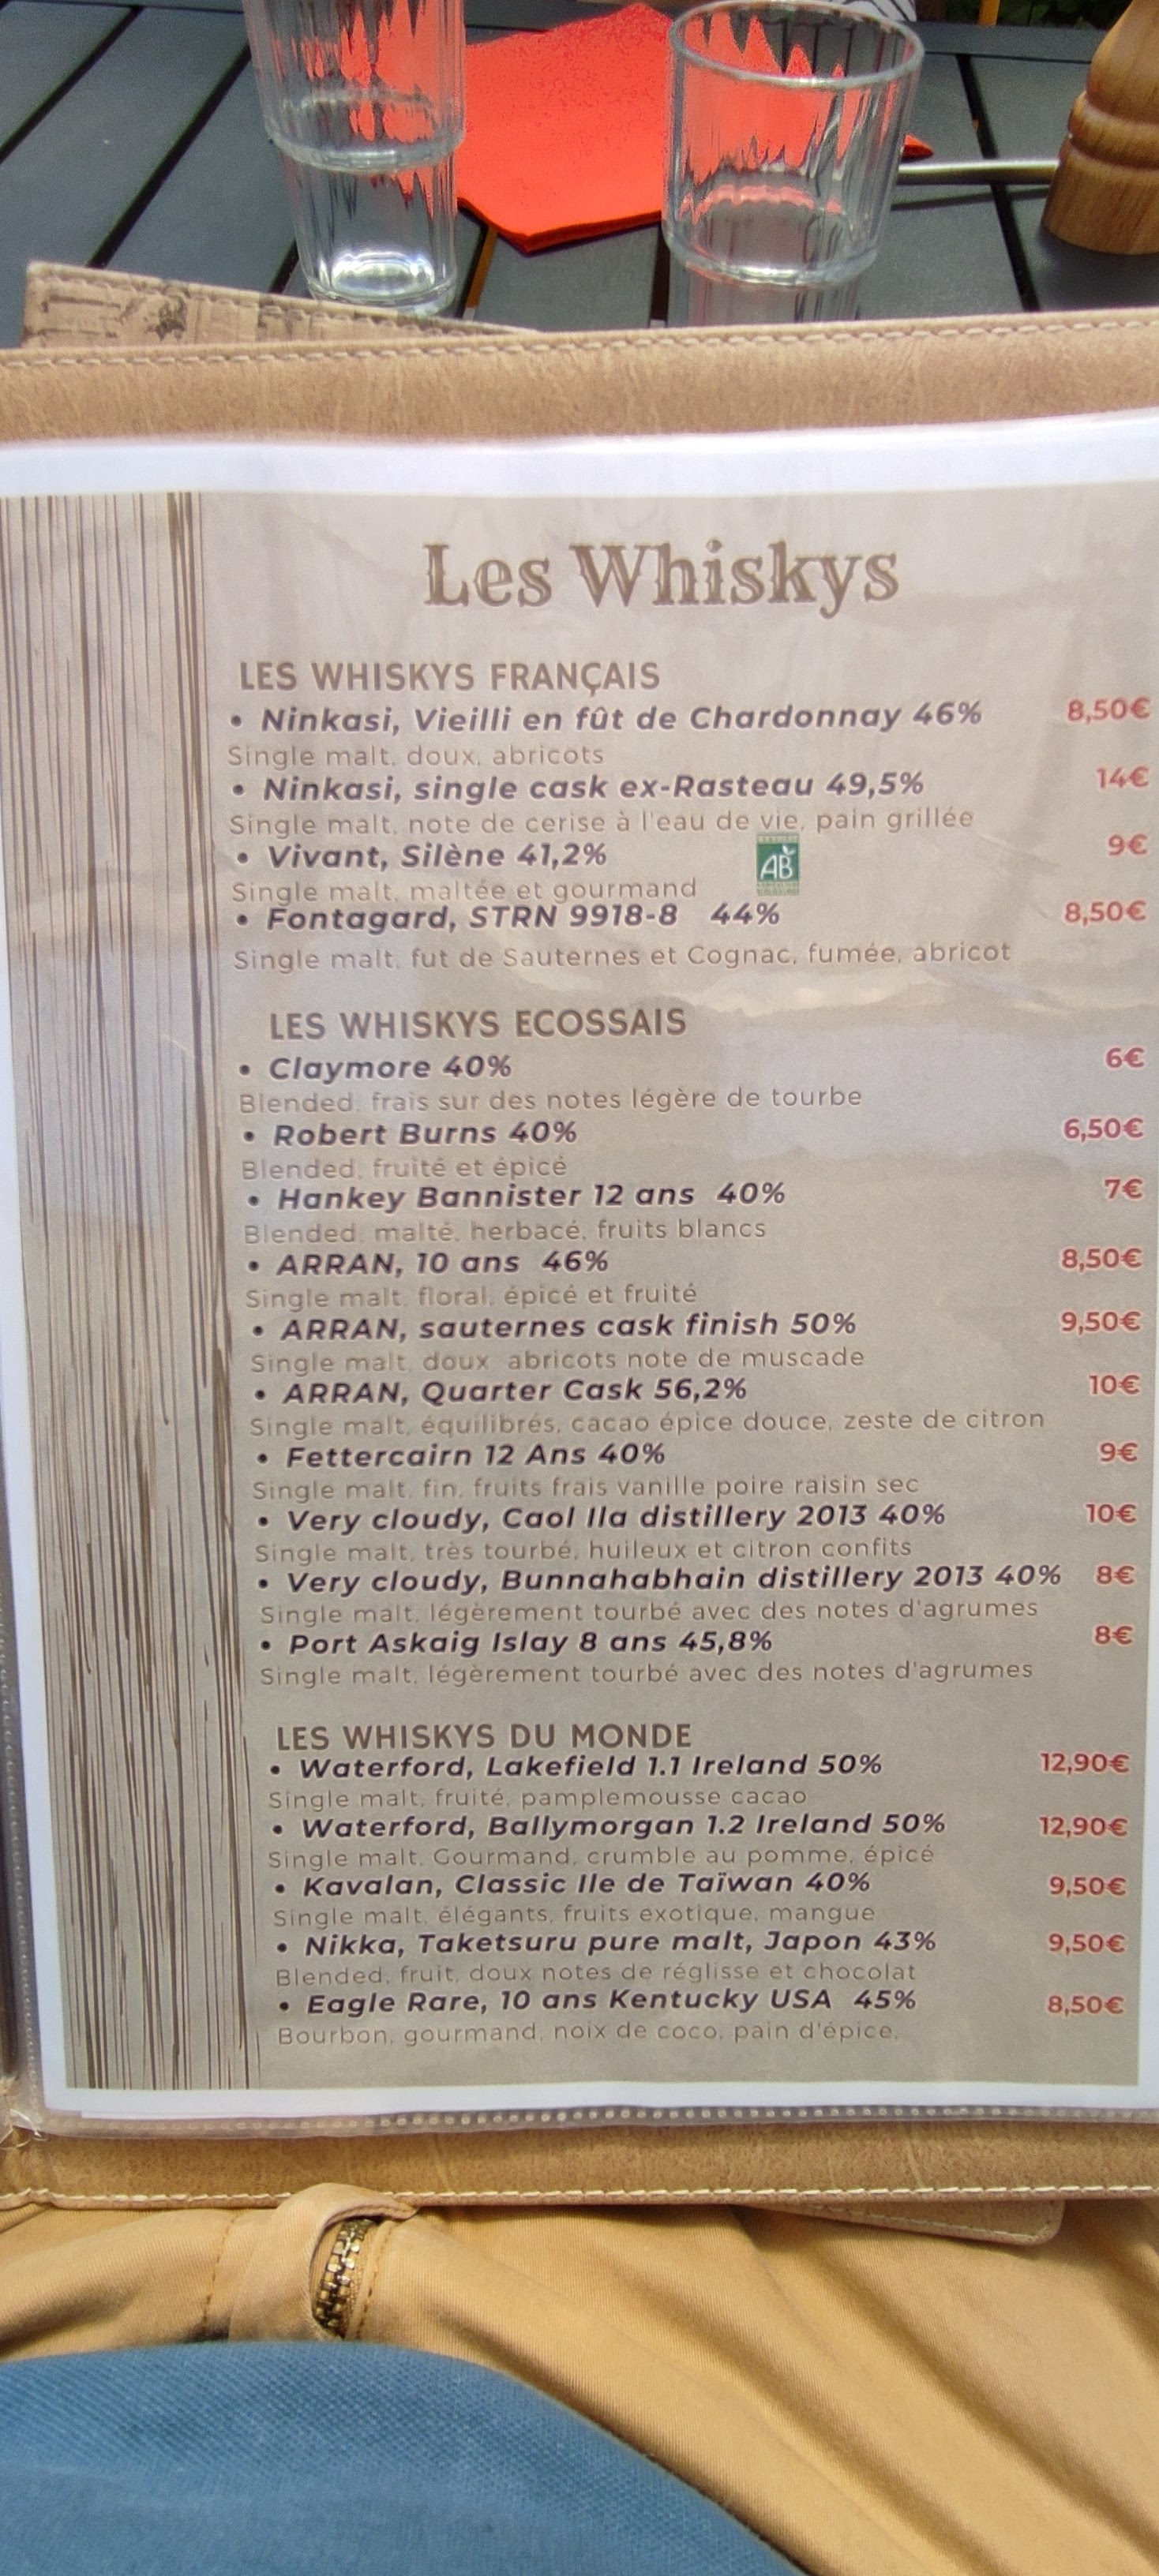 Les Whiskys
LES WHISKYS FRANÇAIS
• Ninkasi, Vieilli en fût de Chardonnay 46% 8,50€
Single malt, doux, abricots
• Ninkasi, single cask ex-Rasteau 49,5% 14€
Single malt, note de cerise à l'eau de vie, pain grillée
• Vivant, Silène 41,2% AB 9€
Single malt, maltée et gourmand
• Fontagard, STRN 9918-8 44% 8,50€
Single malt, fut de Sauternes et Cognac, fumée, abricot
LES WHISKYS ECOSSAIS
• Claymore 40% 6€
Blended, frais sur des notes légère de tourbe
• Robert Burns 40% 6,50€
Blended, fruité et épicé
• Hankey Bannister 12 ans 40% 7€
Blended, malté, herbacé, fruits blancs
• ARRAN, 10 ans 46% 8,50€
Single malt, floral, épicé et fruité
• ARRAN, sauternes cask finish 50% 9,50€
Single malt, doux abricots note de muscade
• ARRAN, Quarter Cask 56,2% 10€
Single malt, équilibrés, cacao épice douce, zeste de citron
• Fettercairn 12 Ans 40% 9€
Single malt, fin, fruits frais vanille poire raisin sec
• Very cloudy, Caol Ila distillery 2013 40% 10€
Single malt, très tourbé, huileux et citron confits
• Very cloudy, Bunnahabhain distillery 2013 40% 8€
Single malt, légèrement tourbé avec des notes d'agrumes
• Port Askaig Islay 8 ans 45,8% 8€
Single malt, légèrement tourbé avec des notes d'agrumes
LES WHISKYS DU MONDE
• Waterford, Lakefield 1.1 Ireland 50% 12,90€
Single malt, fruité, pamplemousse cacao
• Waterford, Ballymorgan 1.2 Ireland 50% 12,90€
Single malt, Gourmand, crumble au pomme, épicé
• Kavalan, Classic Ile de Taïwan 40% 9,50€
Single malt, élégants, fruits exotique, mangue
• Nikka, Taketsuru pure malt, Japon 43% 9,50€
Blended, fruit, doux notes de réglisse et chocolat
• Eagle Rare, 10 ans Kentucky USA 45% 8,50€
Bourbon, gourmand, noix de coco, pain d'épice.